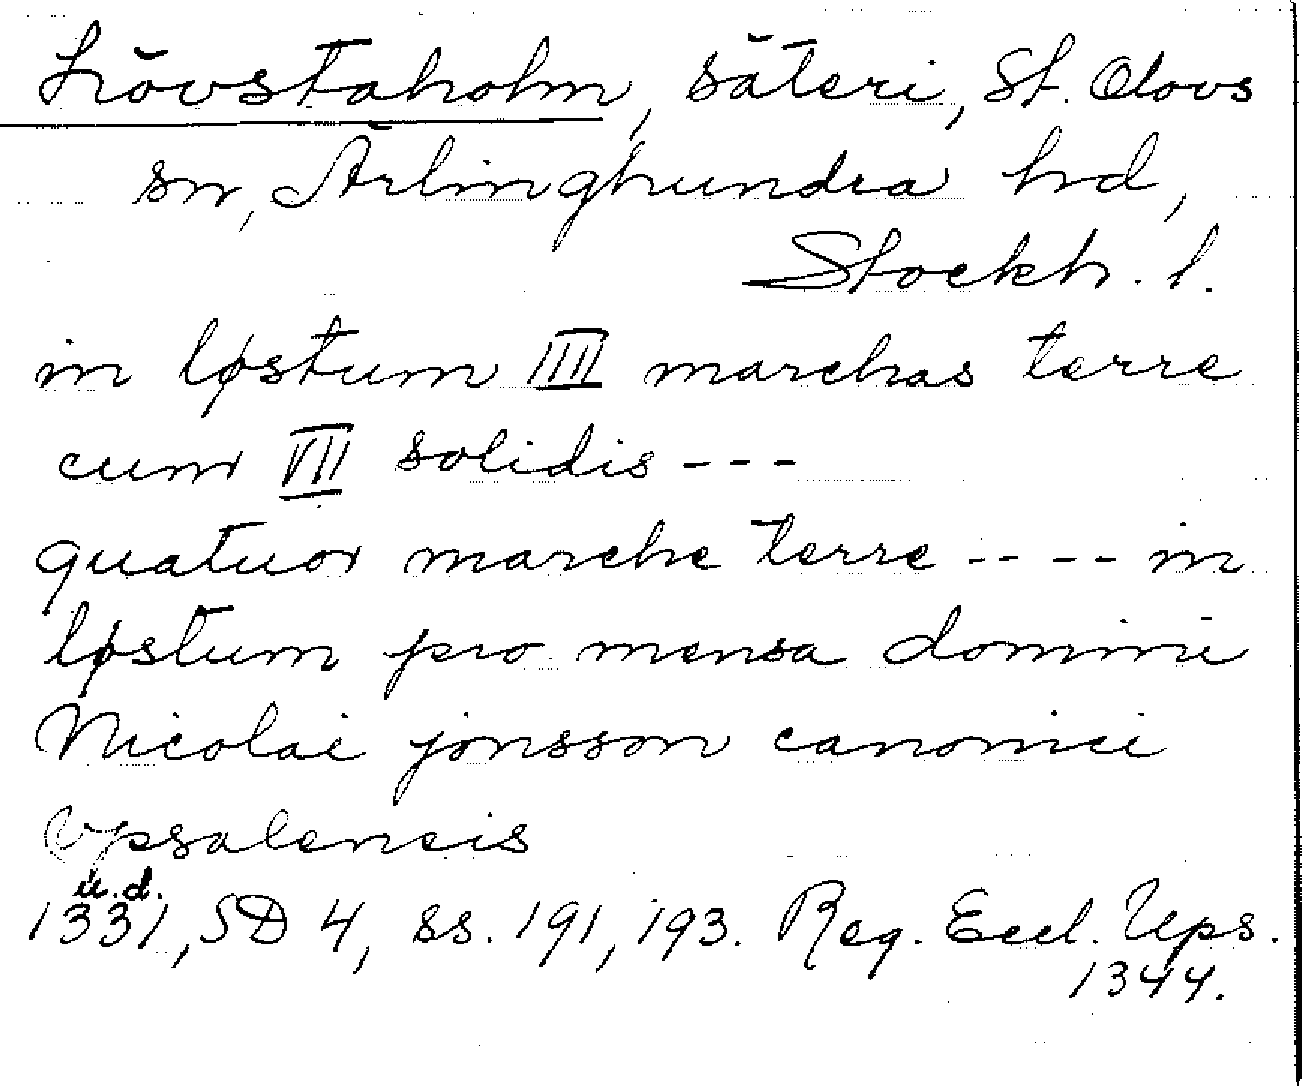 Lövstaholm, säteri, St. Olovs
sn, Ärlinghundra hd,
Stockh. l.
in løstum IIII marchas terre
cum VII solidis ---
quatuor marche terre -- -- in
løstum pro mensa domini
Nicolai jonsson canonici
Vpsalensis
u.d.
1331, SD 4, ss. 191, 193. Reg. Eccl. Ups.
1344.